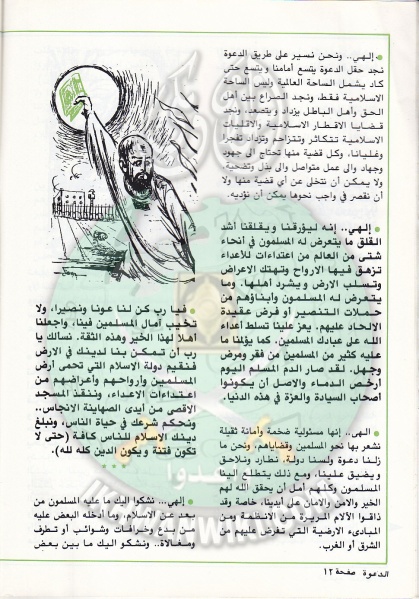 ● إلهي.. ونحن نسير على طريق الدعوة
نجد حقل الدعوة يتسع أمامنا ويتسع حتى
كاد يشمل الساحة العالمية وليس الساحة
الاسلامية فقط، ونجد الصراع بين أهل
الحق وأهل الباطل يزداد ويتصعد، ونجد
قضايا الاقطار الاسلامية والاقليات
الاسلامية تتكاثر وتتزاحم وتزداد تفجرا
وغليانا، وكل قضية منها تحتاج الى جهود
وجهاد والى عمل متواصل والى بذل وتضحية
ولا يمكن أن نتخلى عن أي قضية منها ولا
أن نقصر في واجب نحوها يمكن أن نؤديه.
● إلهي.. إنه ليؤرقنا ويقلقنا أشد
القلق ما يتعرض له المسلمون في أنحاء
شتى من العالم من اعتداءات للأعداء
تزهق فيها الارواح وتهتك الاعراض
وتسلب الارض ويشرد أهلها. وما
يتعرض له المسلمون وأبناؤهم من
حملات التنصير أو فرض عقيدة
الالحاد عليهم. يعز علينا تسلط أعداء
الله على عبادك المسلمين. كما يؤلمنا ما
عليه كثير من المسلمين من فقر ومرض
وجهل. لقد صار الدم المسلم اليوم
أرخص الدماء والاصل أن يكونوا
أصحاب السيادة والعزة في هذه الدنيا.
● الهي.. إنها مسئولية ضخمة وأمانة ثقيلة
نشعر بها نحو المسلمين وقضاياهم، ونحن ما
زلنا دعوة ولسنا دولة. نطارد ونلاحق
ويضيق علينا، ومع ذلك يتطلع الينا
المسلمون وكلهم أمل أن يحقق الله لهم
الخير والامن والامان على أيدينا، خاصة وقد
ذاقوا الآلام المريرة من الانظمة ومن
المبادىء الارضية التي تفرض عليهم من
الشرق أو الغرب.
● فيا رب كن لنا عونا ونصيرا، ولا
تخيب آمال المسلمين فينا، واجعلنا
أهلا لهذا الخير وهذه الثقة. نسألك يا
رب أن تمكن بنا لدينك في الارض
فنقيم دولة الاسلام التي تحمى أرض
المسلمين وأرواحهم وأعراضهم من
اعتداءات الاعداء، وننقذ المسجد
الاقصى من أيدى الصهاينة الانجاس..
وتحكم شرعك في حياة الناس، ونبلغ
دينك الاسلام للناس كافة (حتى لا
تكون فتنة ويكون الدين كله لله).
● إلهي... نشكوا اليك ما عليه المسلمون من
بعد عن الاسلام، وما أدخله البعض عليه
من بدع وخرافات وشوائب أو تطرف
ومغالاة.. ونشكو اليك ما بين بعض
الدعوة صفحة ١٢